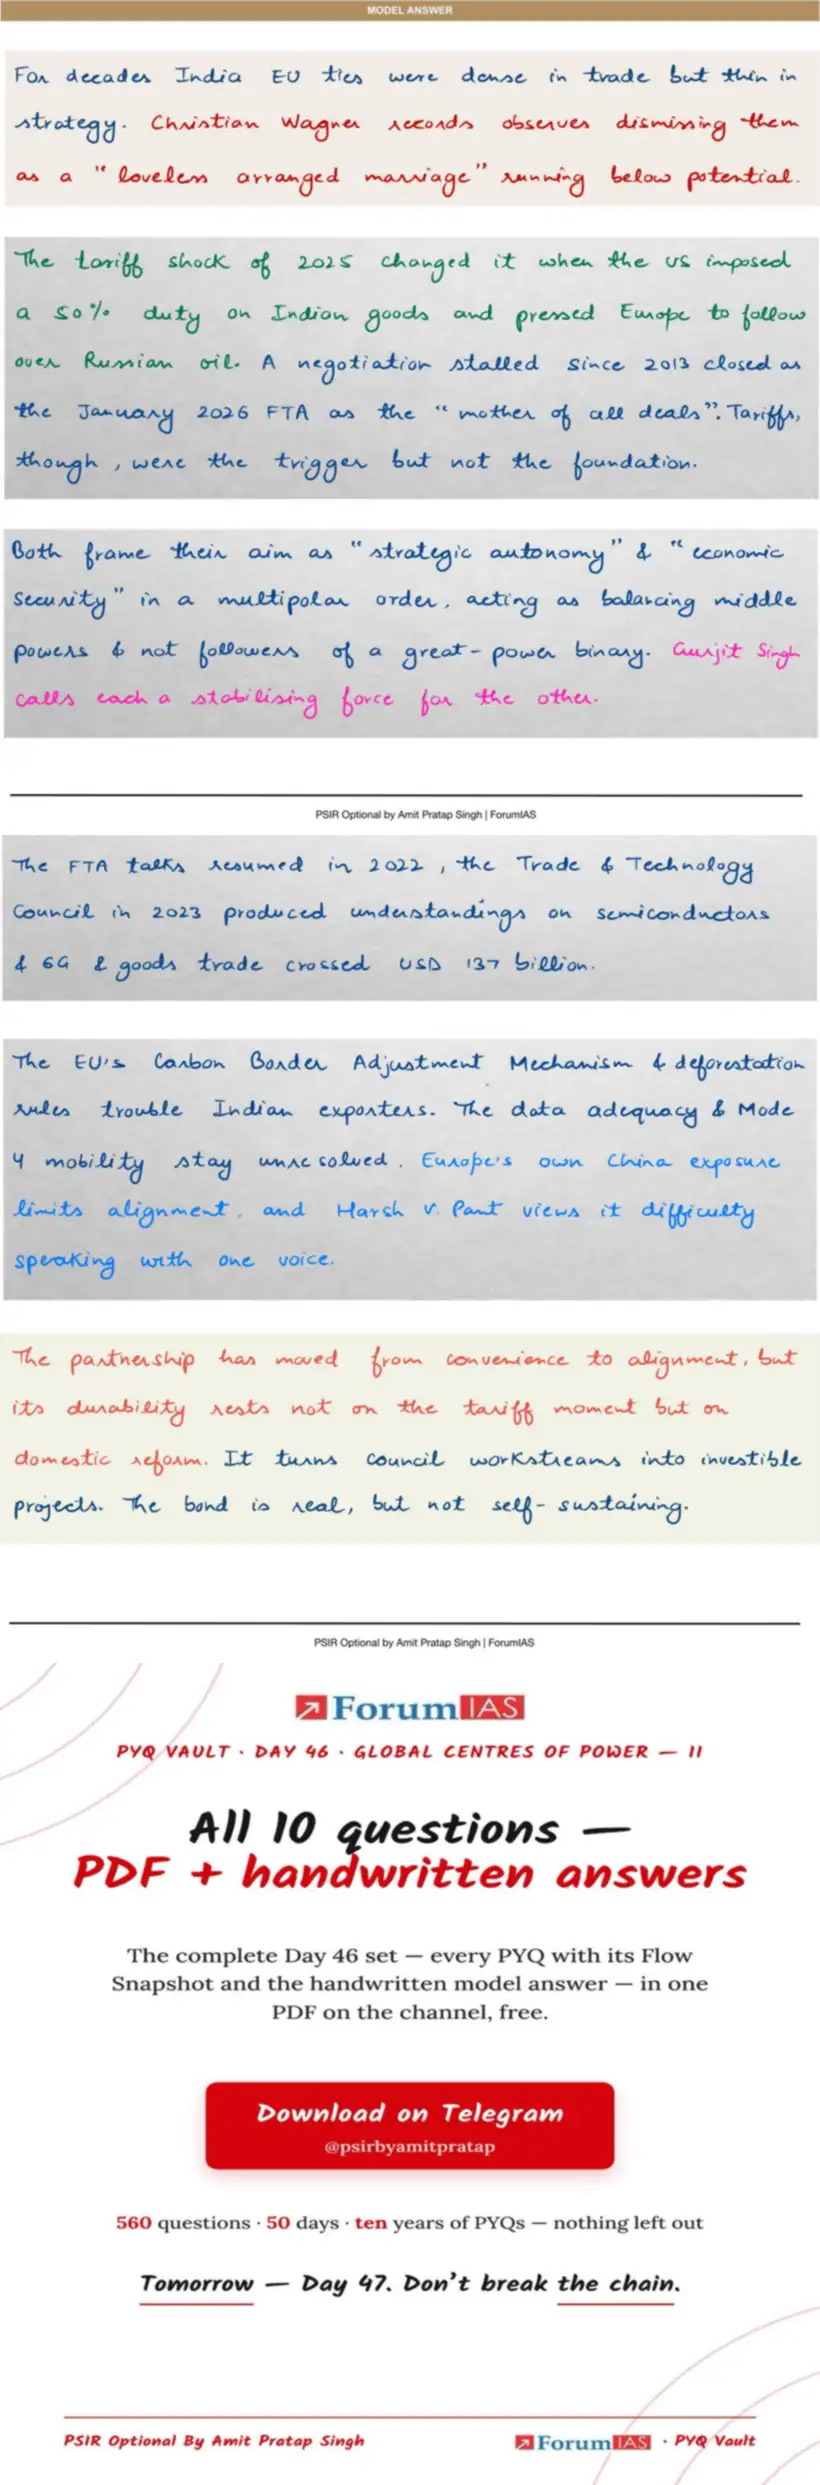 MODEL ANSWER
For decades India EU ties were dense in trade but thin in
strategy. Christian Wagner records observes dismissing them
as a "loveless arranged marriage" running below potential.
The tariff shock of 2025 changed it when the US imposed
a 50% duty on Indian goods and pressed Europe to follow
over Russian oil. A negotiation stalled since 2013 closed as
the January 2026 FTA as the "mother of all deals". Tariffs,
though, were the trigger but not the foundation.
Both frame their aim as "strategic autonomy" & "economic
security" in a multipolar order, acting as balancing middle
powers & not followers of a great-power binary. Gurjit Singh
calls each a stabilising force for the other.
PSIR Optional by Amit Pratap Singh | ForumIAS
The FTA talks resumed in 2022, the Trade & Technology
Council in 2023 produced understandings on semiconductors
& 6G & goods trade crossed USD 137 billion.
The EU's Carbon Border Adjustment Mechanism & deforestation
rules trouble Indian exporters. The data adequacy & Mode
4 mobility stay unresolved. Europe's own China exposure
limits alignment, and Harsh V. Pant views it difficulty
speaking with one voice.
The partnership has moved from convenience to alignment, but
its durability rests not on the tariff moment but on
domestic reform. It turns council workstreams into investible
projects. The bond is real, but not self-sustaining.
PSIR Optional by Amit Pratap Singh | ForumIAS
ForumIAS
PYQ VAULT · DAY 46 · GLOBAL CENTRES OF POWER — II
All 10 questions —
PDF + handwritten answers
The complete Day 46 set — every PYQ with its Flow
Snapshot and the handwritten model answer — in one
PDF on the channel, free.
Download on Telegram
@psirbyamitpratap
560 questions · 50 days · ten years of PYQs — nothing left out
Tomorrow — Day 47. Don't break the chain.
PSIR Optional By Amit Pratap Singh
ForumIAS · PYQ Vault